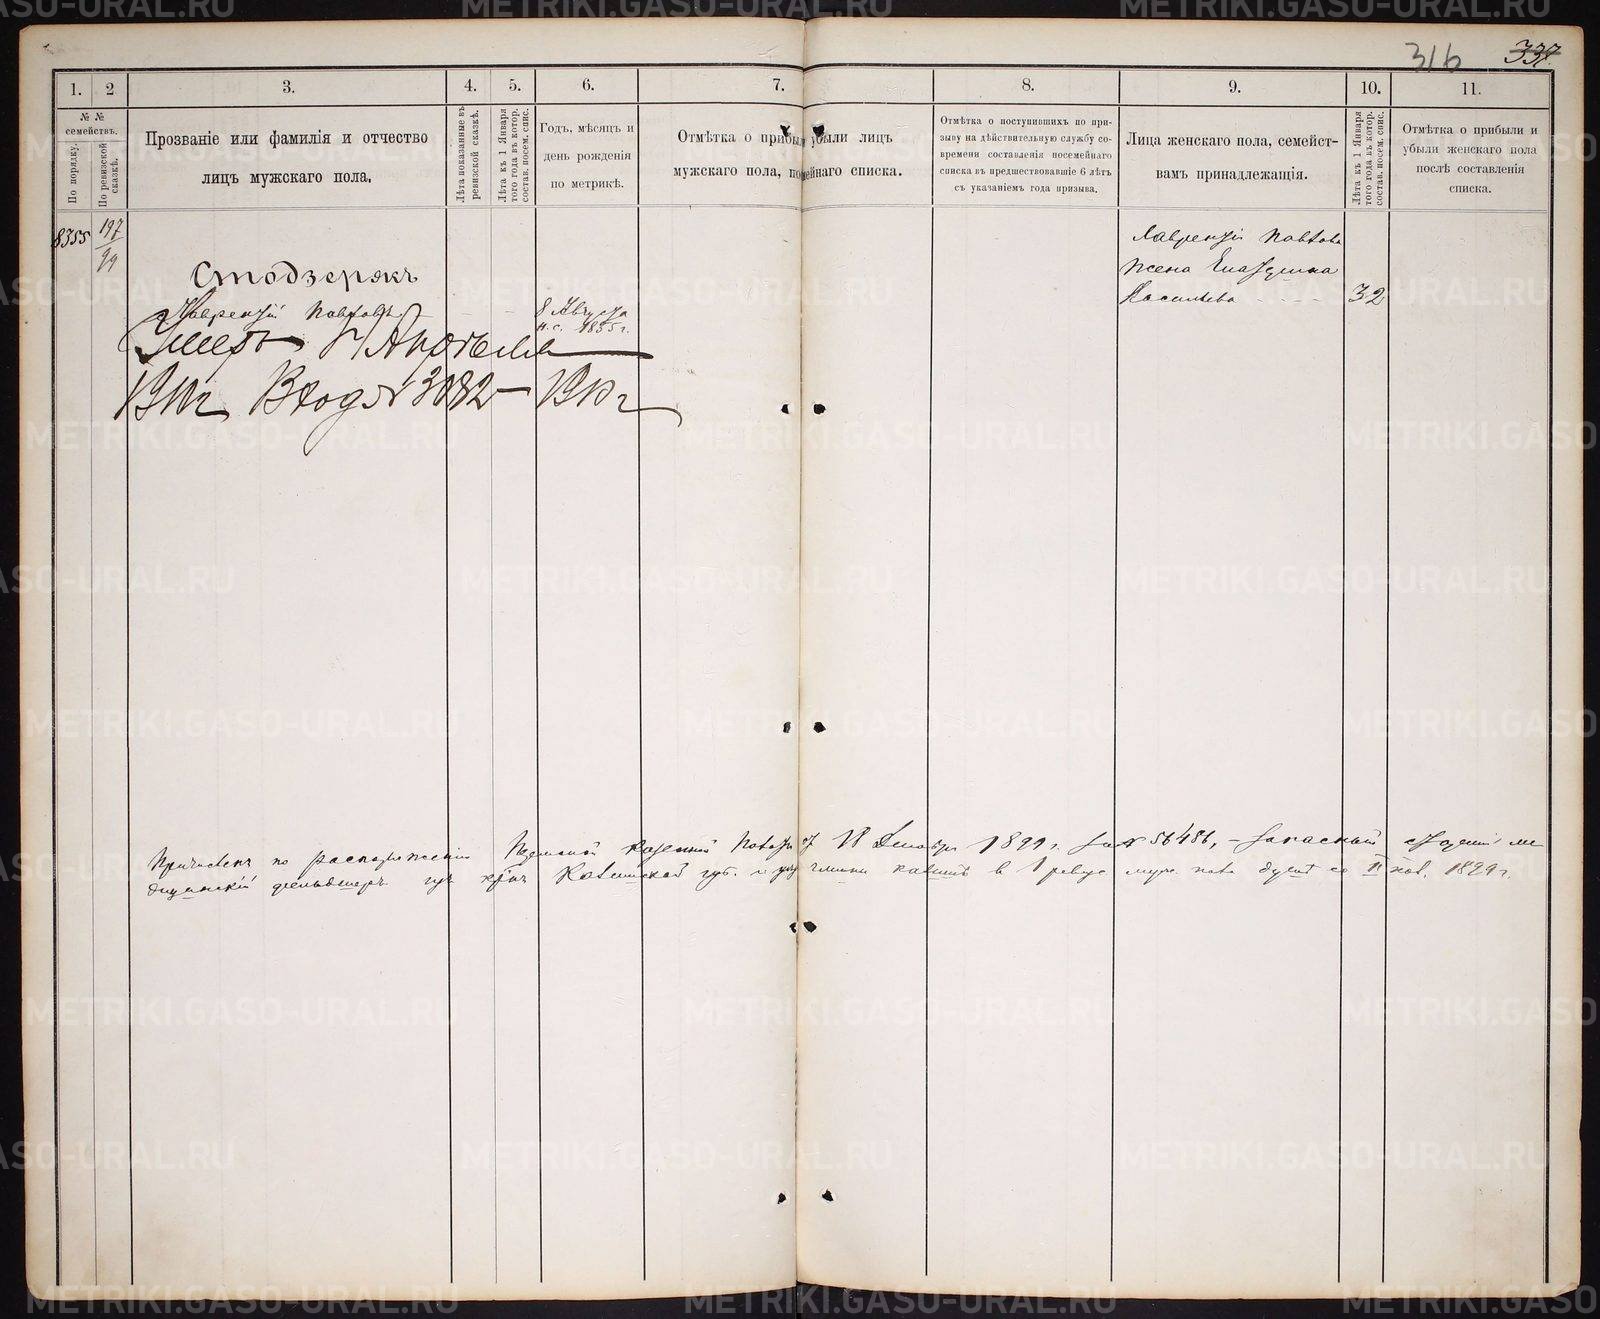 316 337.
1. 2 3. 4. 5. 6. 7. 8. 9. 10. 11.
№ № семействъ.
По порядку.
По ревизской сказкѣ.
Прозваніе или фамилія и отчество
лицъ мужскаго пола.
Лѣта показанные въ
ревизской сказкѣ.
Лѣта къ 1 Января
того года въ котор.
состав. посем. спис.
Годъ, мѣсяцъ и
день рожденія
по метрикѣ.
Отмѣтка о прибыли убыли лицъ
мужскаго пола, посемейнаго списка.
Отмѣтка о поступившихъ по при-
зыву на дѣйствительную службу со-
времени составленія посемейнаго
списка въ предшествовавшіе 6 лѣтъ
съ указаніемъ года призыва.
Лица женскаго пола, семейст-
вамъ принадлежащія.
Лѣта къ 1 Января
того года въ котор.
состав. посем. спис.
Отмѣтка о прибыли и
убыли женскаго пола
послѣ составленія
списка.
8355 197/99
Стодзерякъ
Лаврентій Павловъ
8 Августа
н.с. 1855 г.
Умеръ Апрѣля
1910 г Вход № 3082 – 1910 г
Лаврентія Павлова
жена Екатерина
Васильева 32
Причисленъ по распоряженію Казенной Палаты 18 Декабря 1899 г. за № 56486, – запасный
фельдшеръ изъ кр. Ковенской губ. въ муж. пола 1899 г.
METRIKI.GASO-URAL.RU